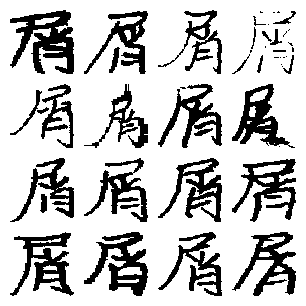 屑屑屑屑
屑屑屑屑
屑屑屑屑
屑屑屑屑